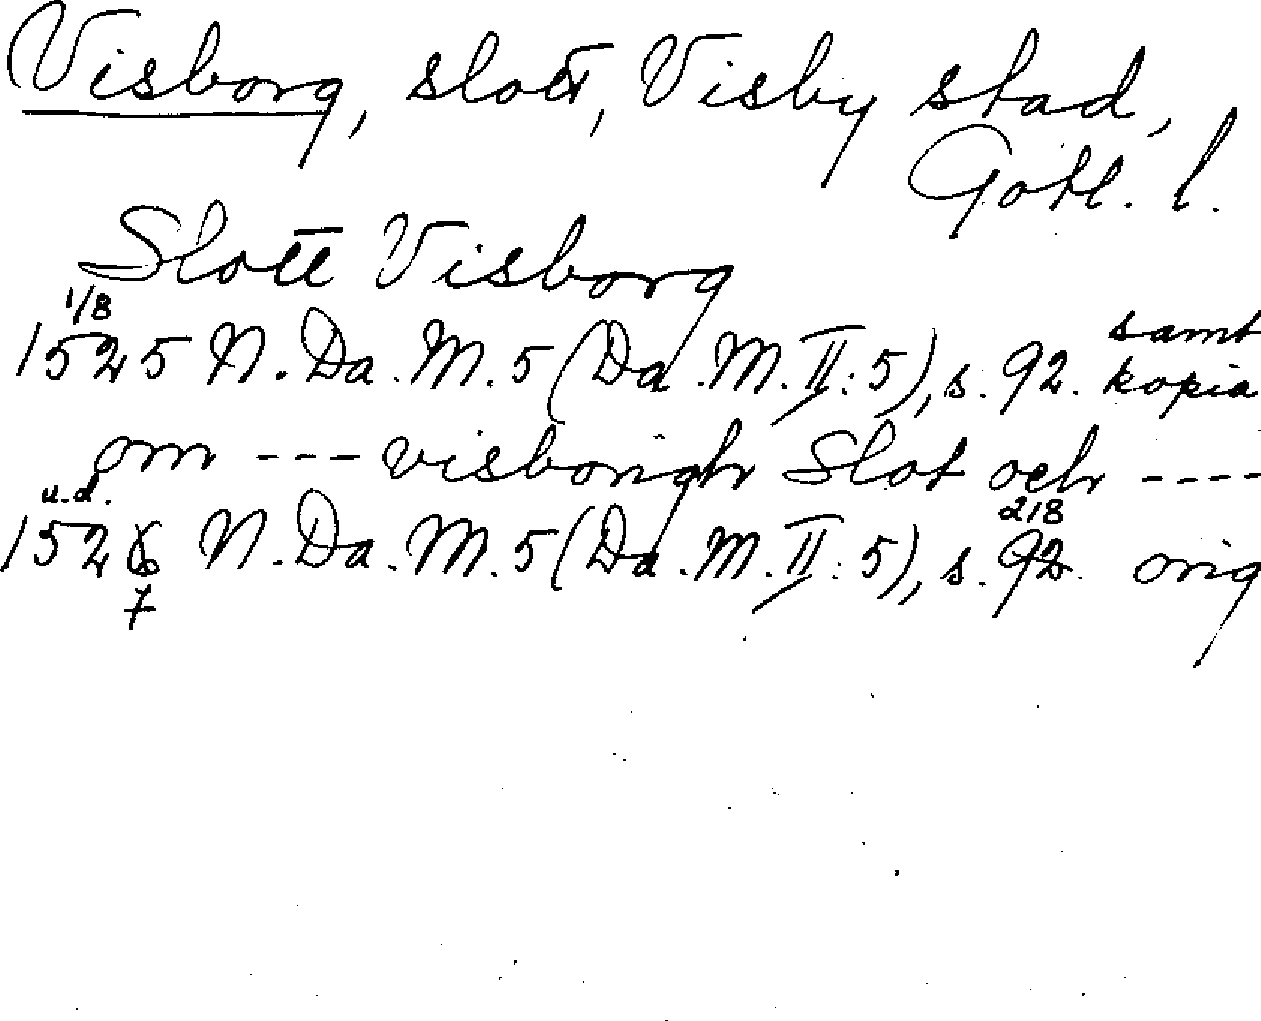 Visborg, slott, Visby stad,
Gotl. l.
Slott Visborg
1/8
1525 N. Da. M. 5 (Da. M. II: 5), s. 92. samt kopia
om --- visborigh Slot och ----
u.d.
1526 N. Da. M. 5 (Da. M. II: 5), s. 92. orig
218
7